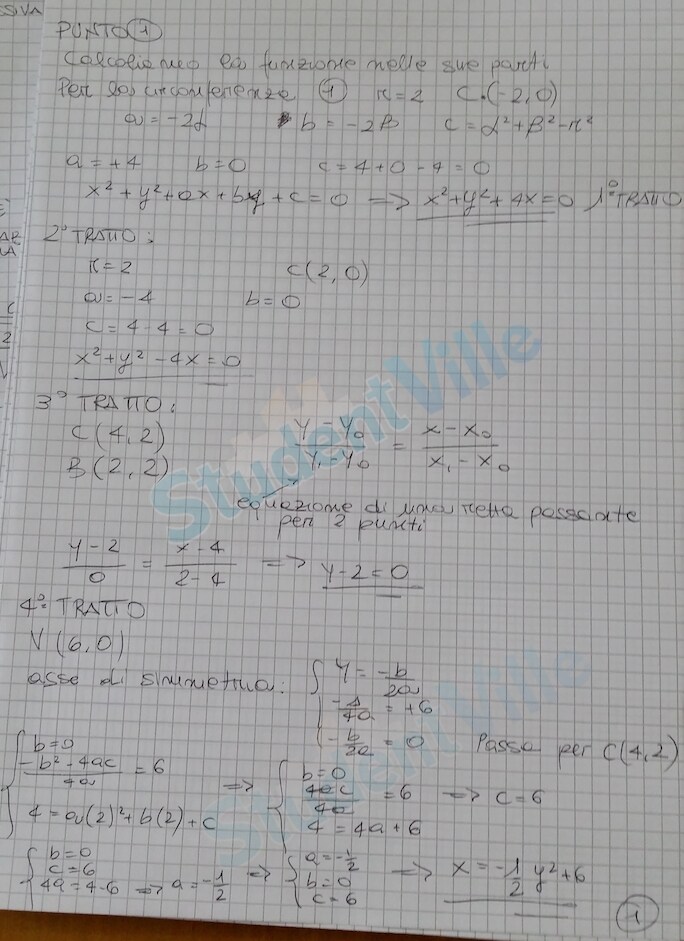 SSIVA
PUNTO 1
Calcoliamo la funzione nelle sue parti
Per la circonferenza 1 r=2 C(-2,0)
a=-2α b=-2β c=α²+β²-r²
a=+4 b=0 c=4+0-4=0
x²+y²+ax+by+c=0 => x²+y²+4x=0 1° TRATTO
2° TRATTO:
r=2 C(2,0)
a=-4 b=0
c=4-4=0
x²+y²-4x=0
3° TRATTO:
C(4,2) (y-y₀)/(y₁-y₀) = (x-x₀)/(x₁-x₀)
B(2,2)
equazione di una retta passante
per 2 punti
(y-2)/0 = (x-4)/(2-4) => y-2=0
4° TRATTO
V(6,0)
asse di simmetria: { y=-b/2a
-Δ/4a=+6
-b/2a=0 Passa per C(4,2)
{ b=0
-b²-4ac/4a=6
4=a(2)²+b(2)+c
=> { b=0
4ac/4a=6 => c=6
4=4a+6
{ b=0
c=6
4a=4-6 => a=-1/2
=> { a=-1/2
b=0
c=6
=> x=-1/2 y²+6
1
StudentVille
StudentVille